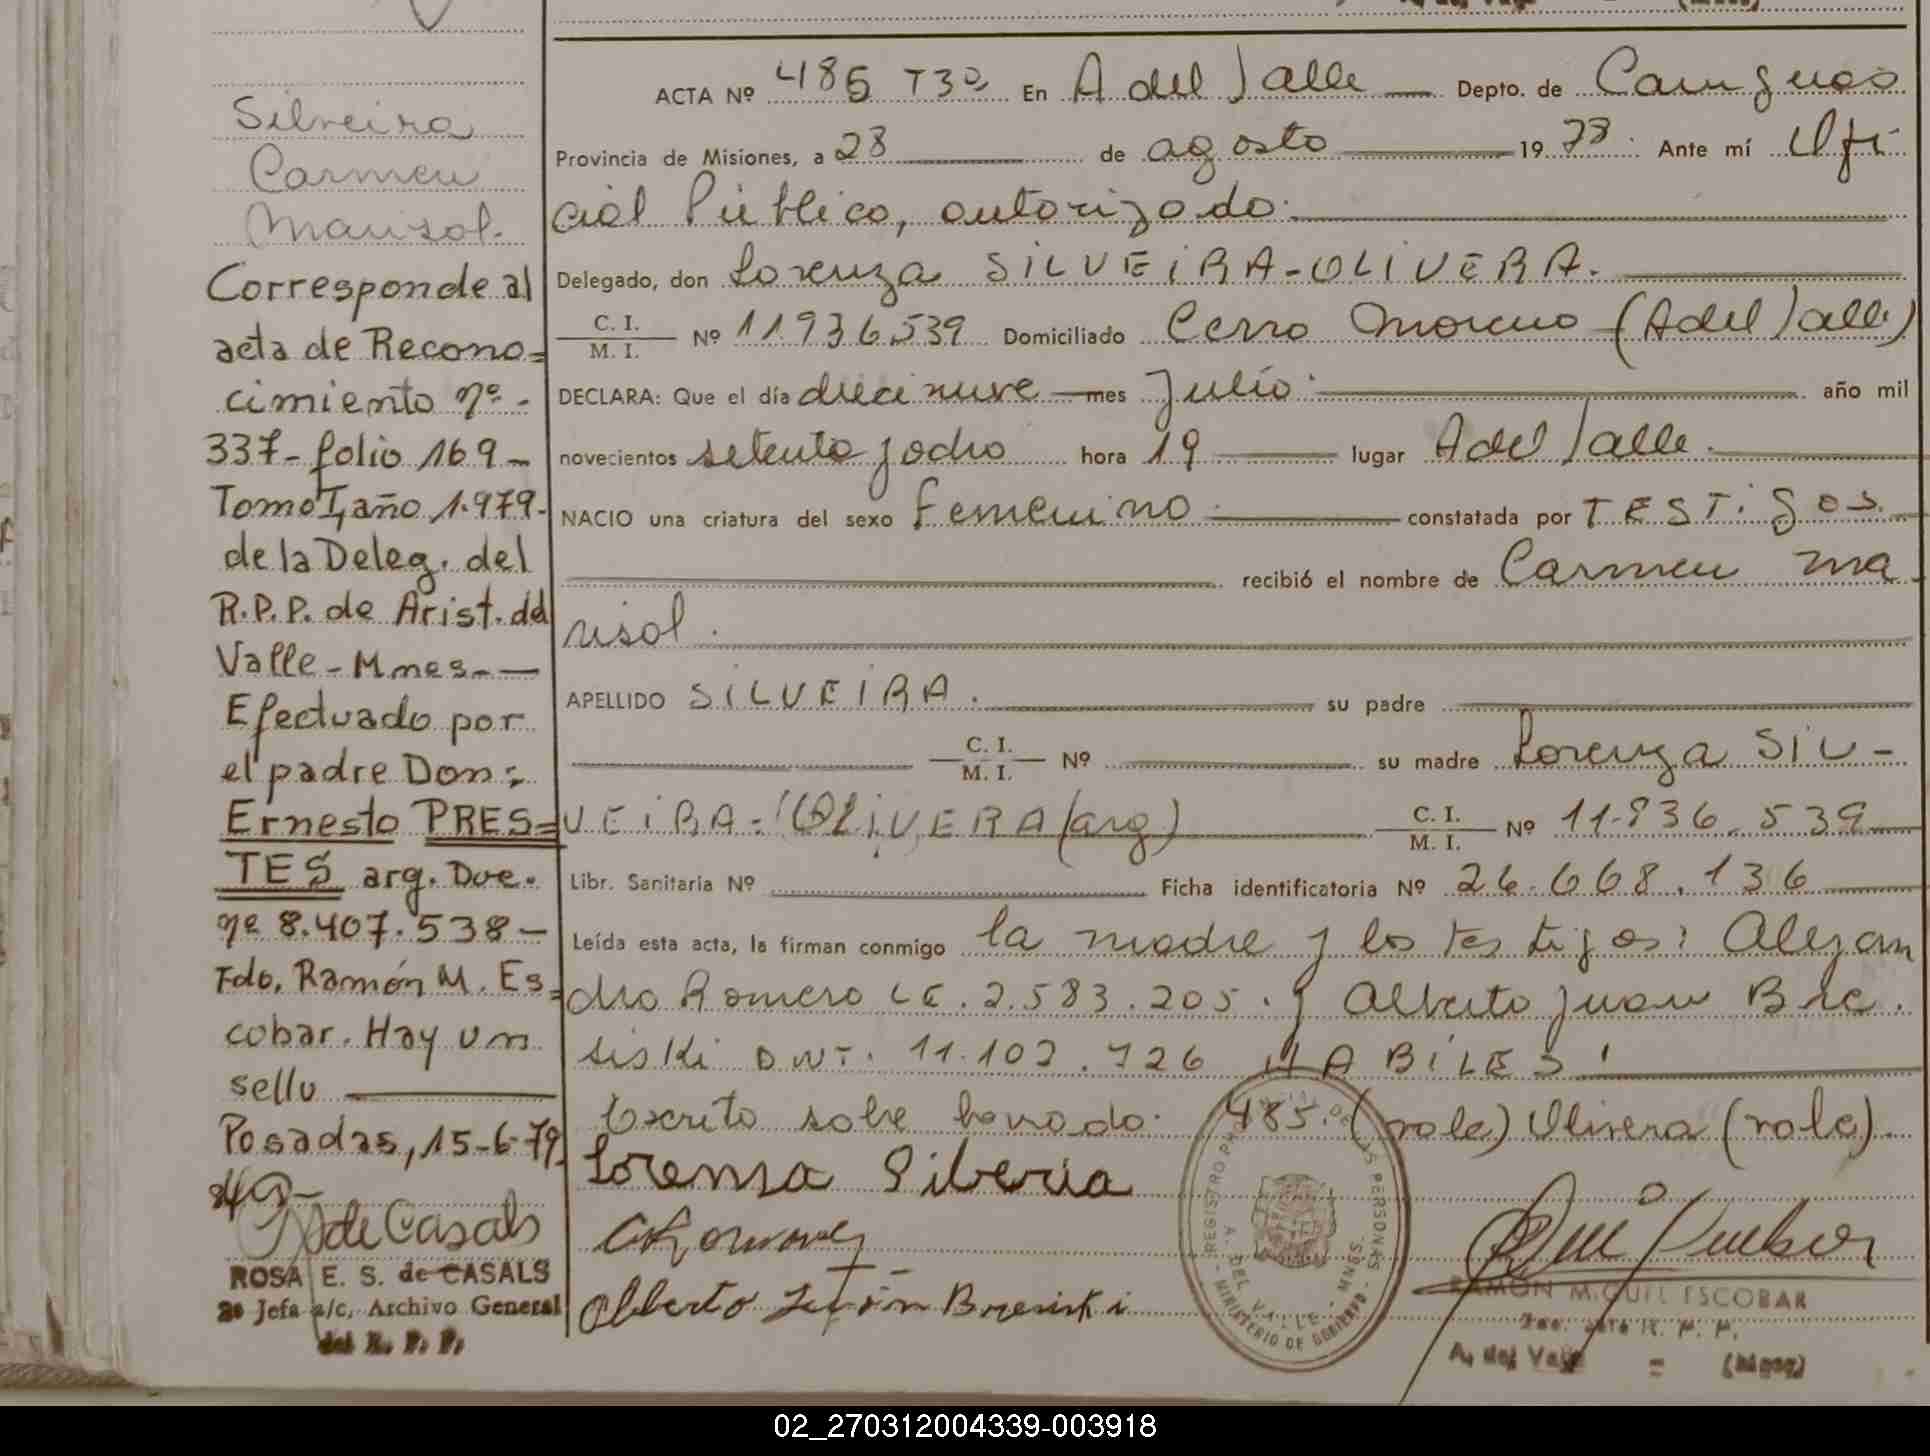 Silveira
Carmen
Marisol.
Corresponde al
acta de Recono=
cimiento nº -
337- folio 169-
Tomo I, año 1.979-
de la Deleg. del
R.P.P. de Arist. del
Valle - Mnes. -
Efectuado por
el padre Don:
Ernesto PRES=
TES arg. Doc.
nº 8.407.538-
Fdo. Ramón M. Es=
cobar. Hay un
sello
Posadas, 15-6-79
de Casals
ROSA E. S. de CASALS
2º Jefa a/c, Archivo General
del R. P. P.
ACTA Nº 485 T3º En A del Valle Depto. de Cainguas
Provincia de Misiones, a 28 de agosto 1978. Ante mí Ofi-
cial Público, autorizado.
Delegado, don Lorenza SILVEIRA-OLIVERA.
C. I.
M. I. Nº 11.936.539 Domiciliado Cerro Moreno (A del Valle)
DECLARA: Que el día diecinueve mes Julio año mil
novecientos setenta y ocho hora 19 lugar A del Valle.
NACIO una criatura del sexo Femenino constatada por TESTigos.
recibió el nombre de Carmen Ma-
risol.
APELLIDO SILVEIRA. su padre
C. I.
M. I. Nº su madre Lorenza SIL-
VEIRA-OLIVERA (arg) C. I.
M. I. Nº 11.936.539
Libr. Sanitaria Nº Ficha identificatoria Nº 26.668.136
Leída esta acta, la firman conmigo la madre y los testigos: Alejan
dro Romero LE. 2.583.205. y Alberto Juan Bre.
siski DNI. 11.102.726 HABILES.
Escrito sobre borrado: 485. (vale) Olivera (vale).
Lorensa Silveria
Alberto Bresiski
REGISTRO DE LAS PERSONAS
A. DEL VALLE - MNES.
MINISTERIO DE GOBIERNO
RAMON MIGUEL ESCOBAR
A. del Valle = (Mnes)
02_270312004339-003918